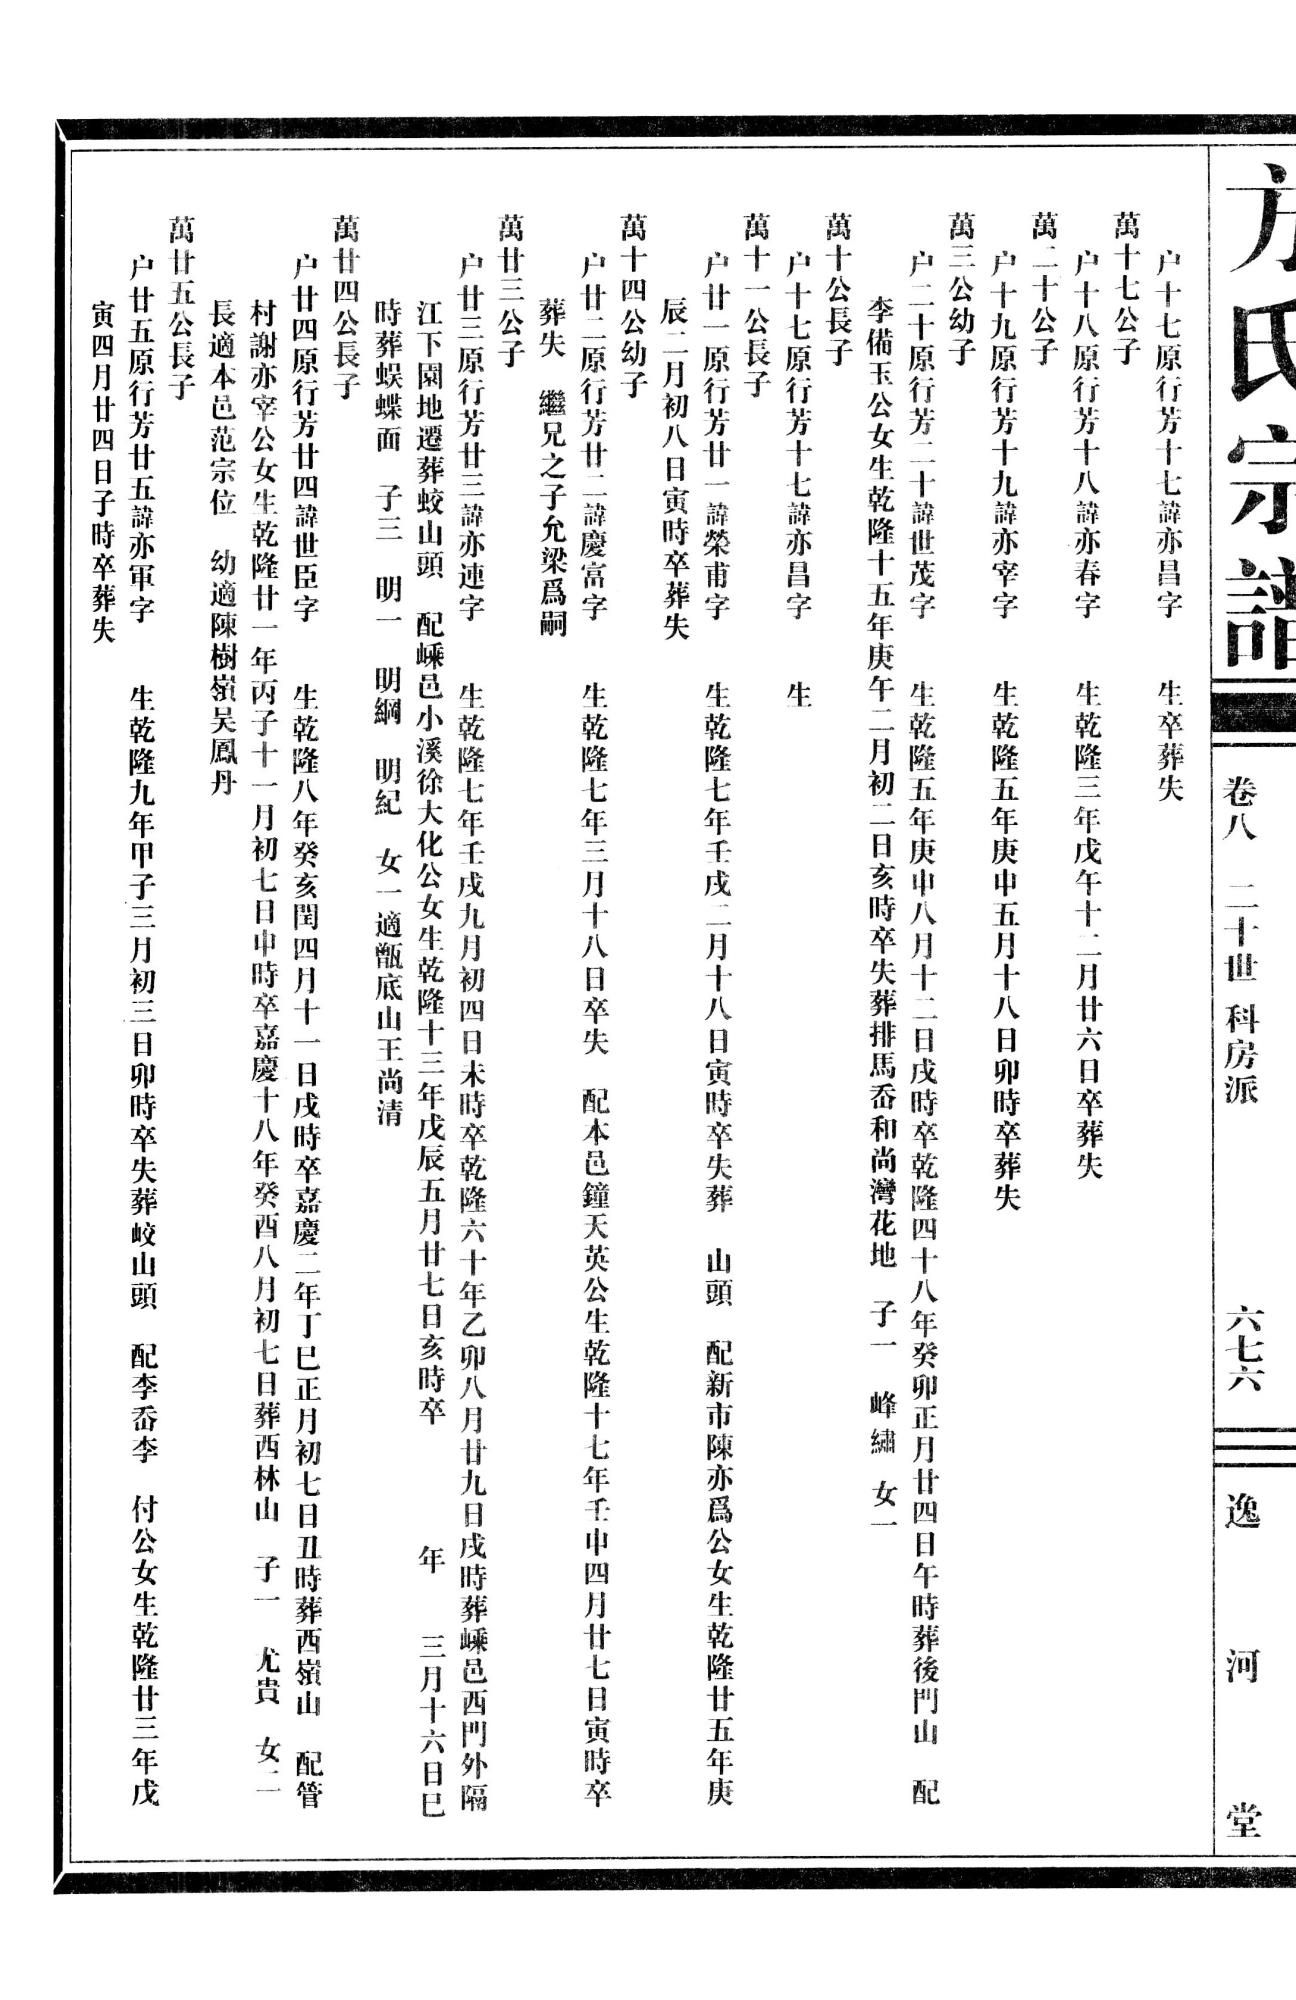 方氏宗譜
卷八　二十世　科房派
六七六
逸河堂
户十七原行芳十七諱亦昌字　生卒葬失
萬十七公子
户十八原行芳十八諱亦春字　生乾隆三年戊午十二月廿六日卒葬失
萬二十公子
户十九原行芳十九諱亦宰字　生乾隆五年庚申五月十八日卯時卒葬失
萬三公幼子
户二十原行芳二十諱世茂字　生乾隆五年庚申八月十二日戌時卒乾隆四十八年癸卯正月廿四日午時葬後門山　配
李備玉公女生乾隆十五年庚午二月初二日亥時卒失葬排馬岙和尚灣花地　子一　峰繡　女一
萬十公長子
户十七原行芳十七諱亦昌字　生
萬十一公長子
户廿一原行芳廿一諱榮甫字　生乾隆七年壬戌二月十八日寅時卒失葬　山頭　配新市陳亦爲公女生乾隆廿五年庚
辰二月初八日寅時卒葬失
萬十四公幼子
户廿二原行芳廿二諱慶富字　生乾隆七年三月十八日卒失　配本邑鐘天英公生乾隆十七年壬申四月廿七日寅時卒
葬失　繼兄之子允梁爲嗣
萬廿三公子
户廿三原行芳廿三諱亦連字　生乾隆七年壬戌九月初四日未時卒乾隆六十年乙卯八月廿九日戌時葬嵊邑西門外隔
江下園地遷葬蛟山頭　配嵊邑小溪徐大化公女生乾隆十三年戊辰五月廿七日亥時卒　　年　　三月十六日巳
時葬蜈蝶面　子三　明一　明綱　明紀　女一適甑底山王尚清
萬廿四公長子
户廿四原行芳廿四諱世臣字　生乾隆八年癸亥閏四月十一日戌時卒嘉慶二年丁巳正月初七日丑時葬西嶺山　配管
村謝亦宰公女生乾隆廿一年丙子十一月初七日申時卒嘉慶十八年癸酉八月初七日葬西林山　子一　尤貴　女二
長適本邑范宗位　幼適陳樹嶺吴鳳丹
萬廿五公長子
户廿五原行芳廿五諱亦軍字　生乾隆九年甲子三月初三日卯時卒失葬峧山頭　配李岙李　付公女生乾隆廿三年戊
寅四月廿四日子時卒葬失